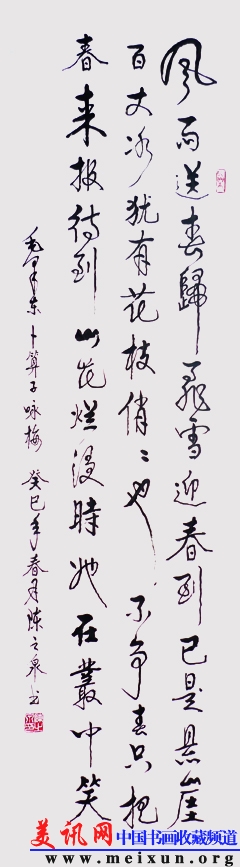 風雨送春歸飛雪迎春到已是懸崖
百丈冰猶有花枝俏俏也不争春只把
春来报待到山花烂漫時她在叢中笑
毛泽东卜算子咏梅 癸巳年春月陈之泉书
美讯网 中国书画收藏频道
www.meixun.org